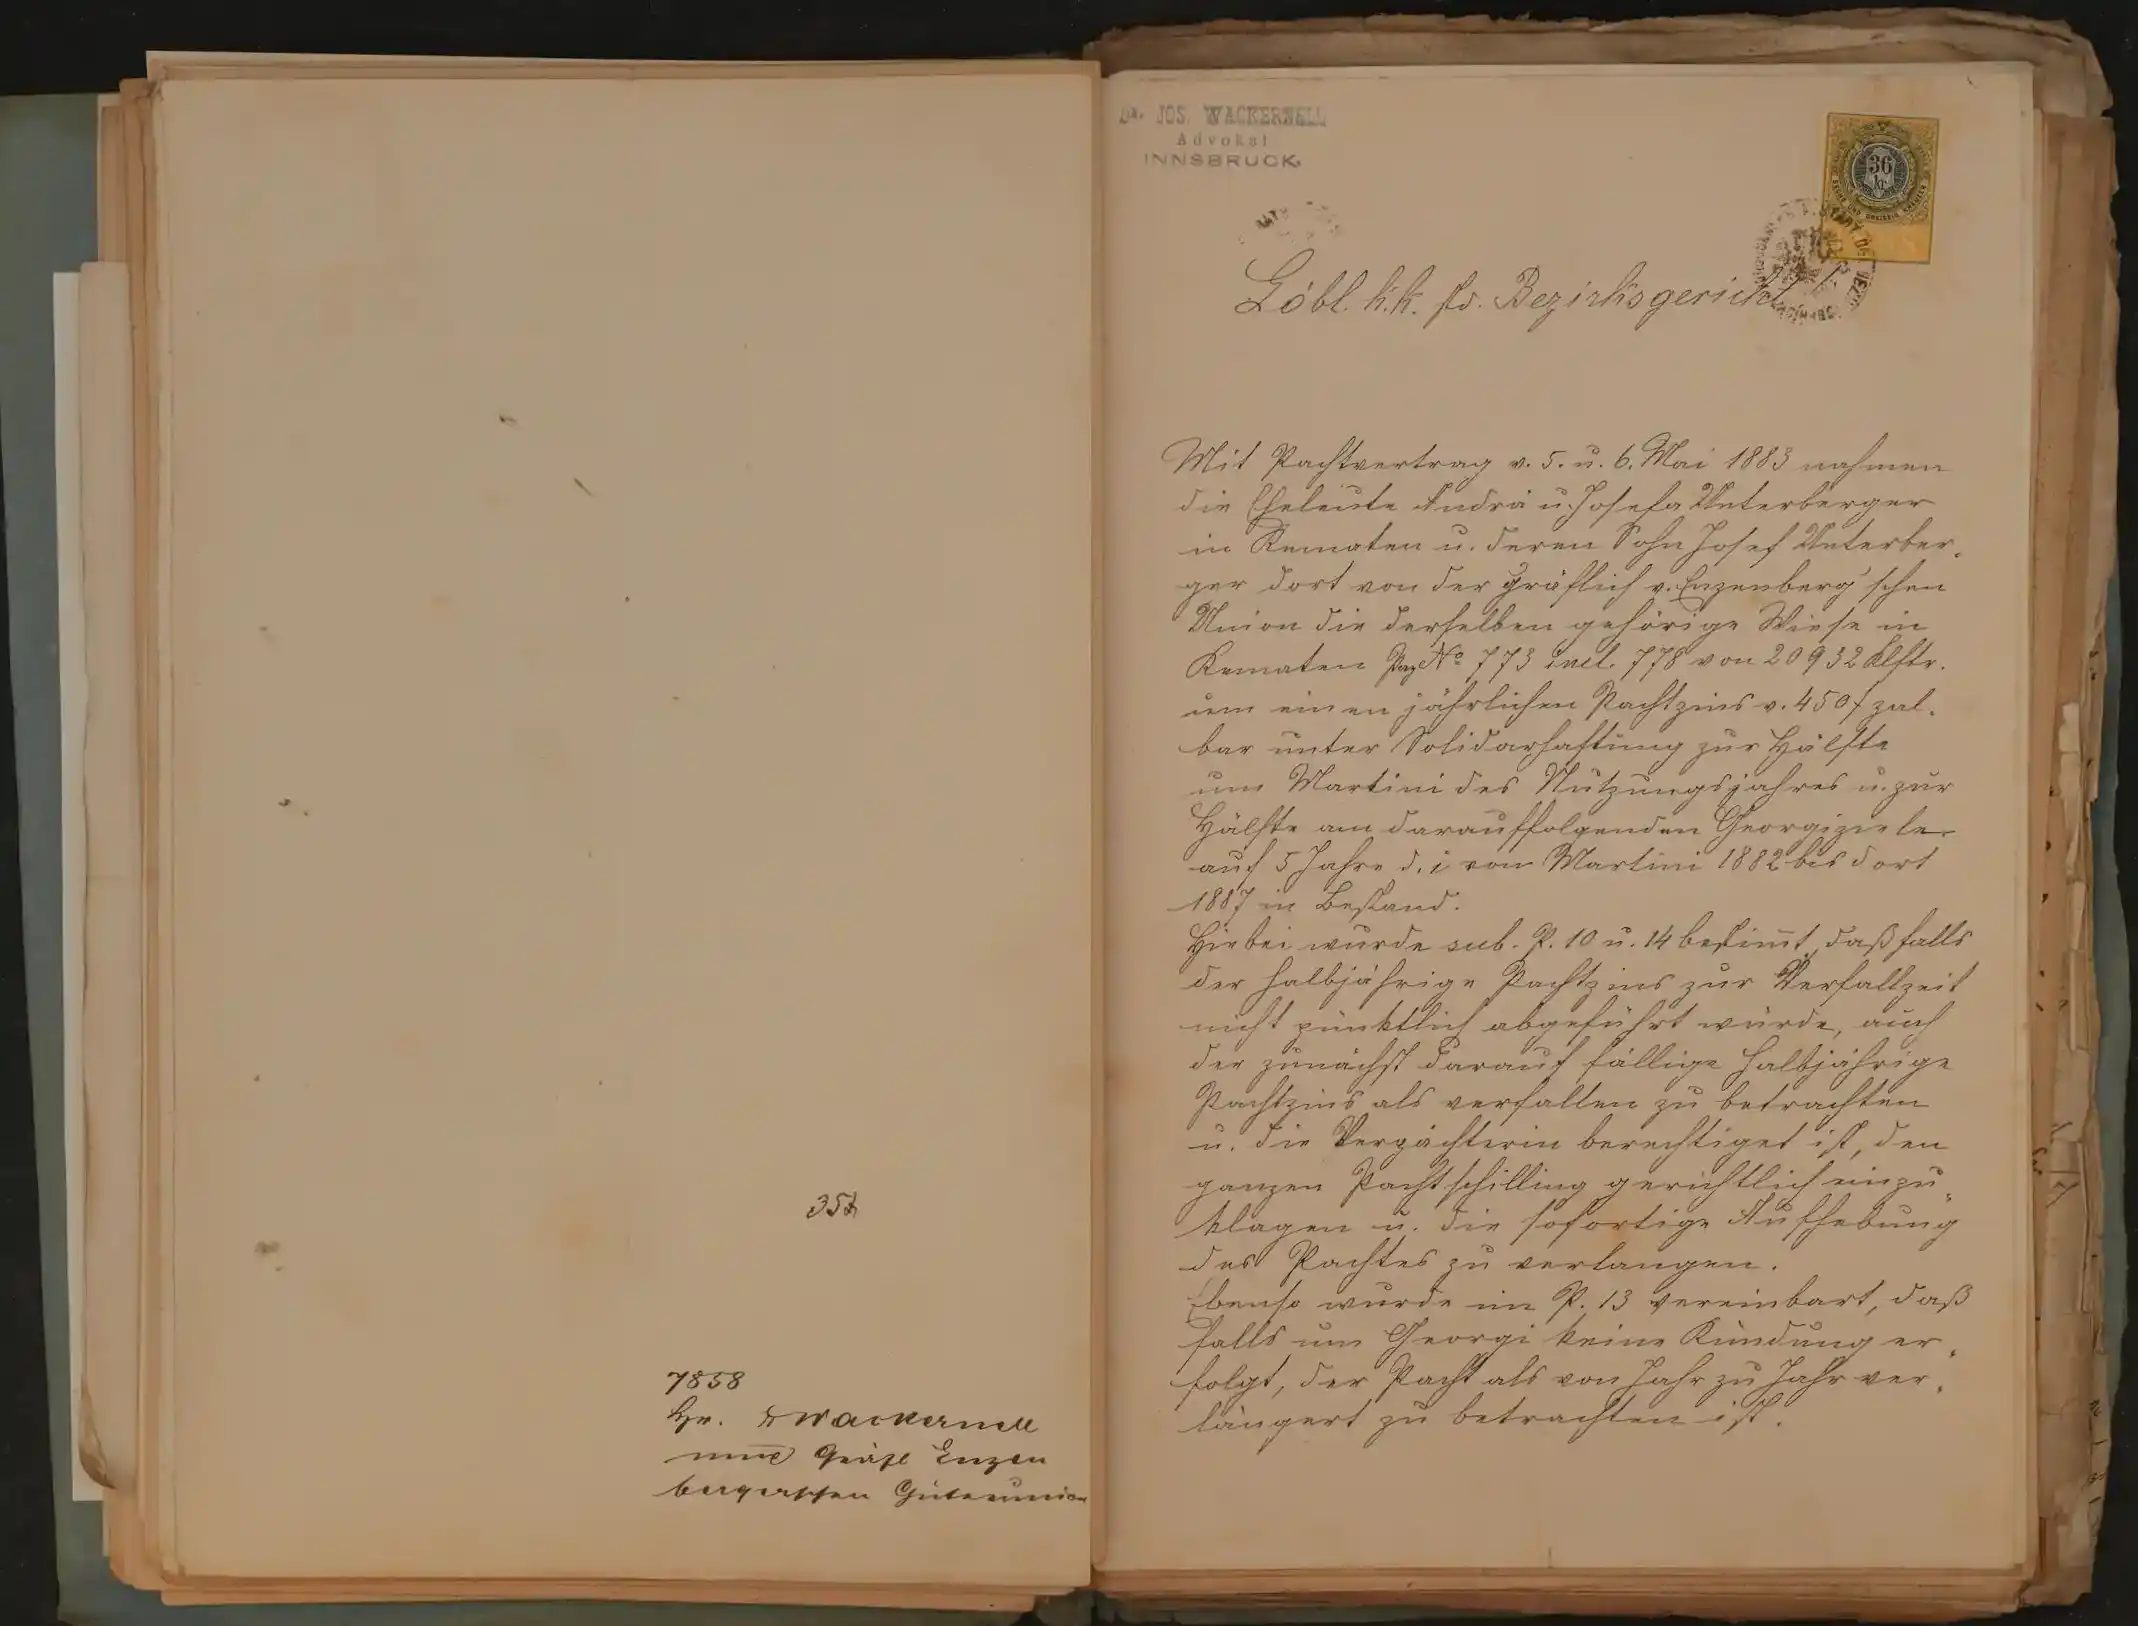 7858
Hr. Dr Wackernell
nne Gräfl Enzen
bergerschen Güterunion
Dr. JOS. WACKERNELL
Advokat
INNSBRUCK.
36
kr
SECHS UND DREISSIG KREUZER
Löbl. k. k. st. d. Bezirksgericht!
Mit Pachtvertrag v. 5. u. 6. Mai 1883 nahmen
die Eheleute Andrä u. Josefa Unterberger
in Kematen u. deren Sohn Josef Unterber-
ger dort von der gräflich v. Enzenberg'schen
Union die derselben gehörige Wiese in
Kematen Parz No 773 incl. 778 von 20932 Klftr.
um einen jährlichen Pachtzins v. 450 f zal-
bar unter Solidarhaftung zur Hälfte
um Martini des Nutzungsjahres u. zur
Hälfte am darauffolgenden Georgiziele
auf 5 Jahre d. i von Martini 1882 bis dort
1887 in Bestand.
Hiebei wurde sub. P. 10 u. 14 bestimmt, daß falls
der halbjährige Pachtzins zur Verfallzeit
nicht pünktlich abgeführt würde, auch
der zunächst darauf fällige halbjährige
Pachtzins als verfallen zu betrachten
u. die Verpächterin berechtiget ist, den
ganzen Pachtschilling gerichtlich einzu-
klagen u. die sofortige Aufhebung
des Pachtes zu verlangen.
Ebenso wurde im P. 13 vereinbart, daß
falls um Georgi keine Kündung er-
folgt, der Pacht als von Jahr zu Jahr ver-
längert zu betrachten ist.